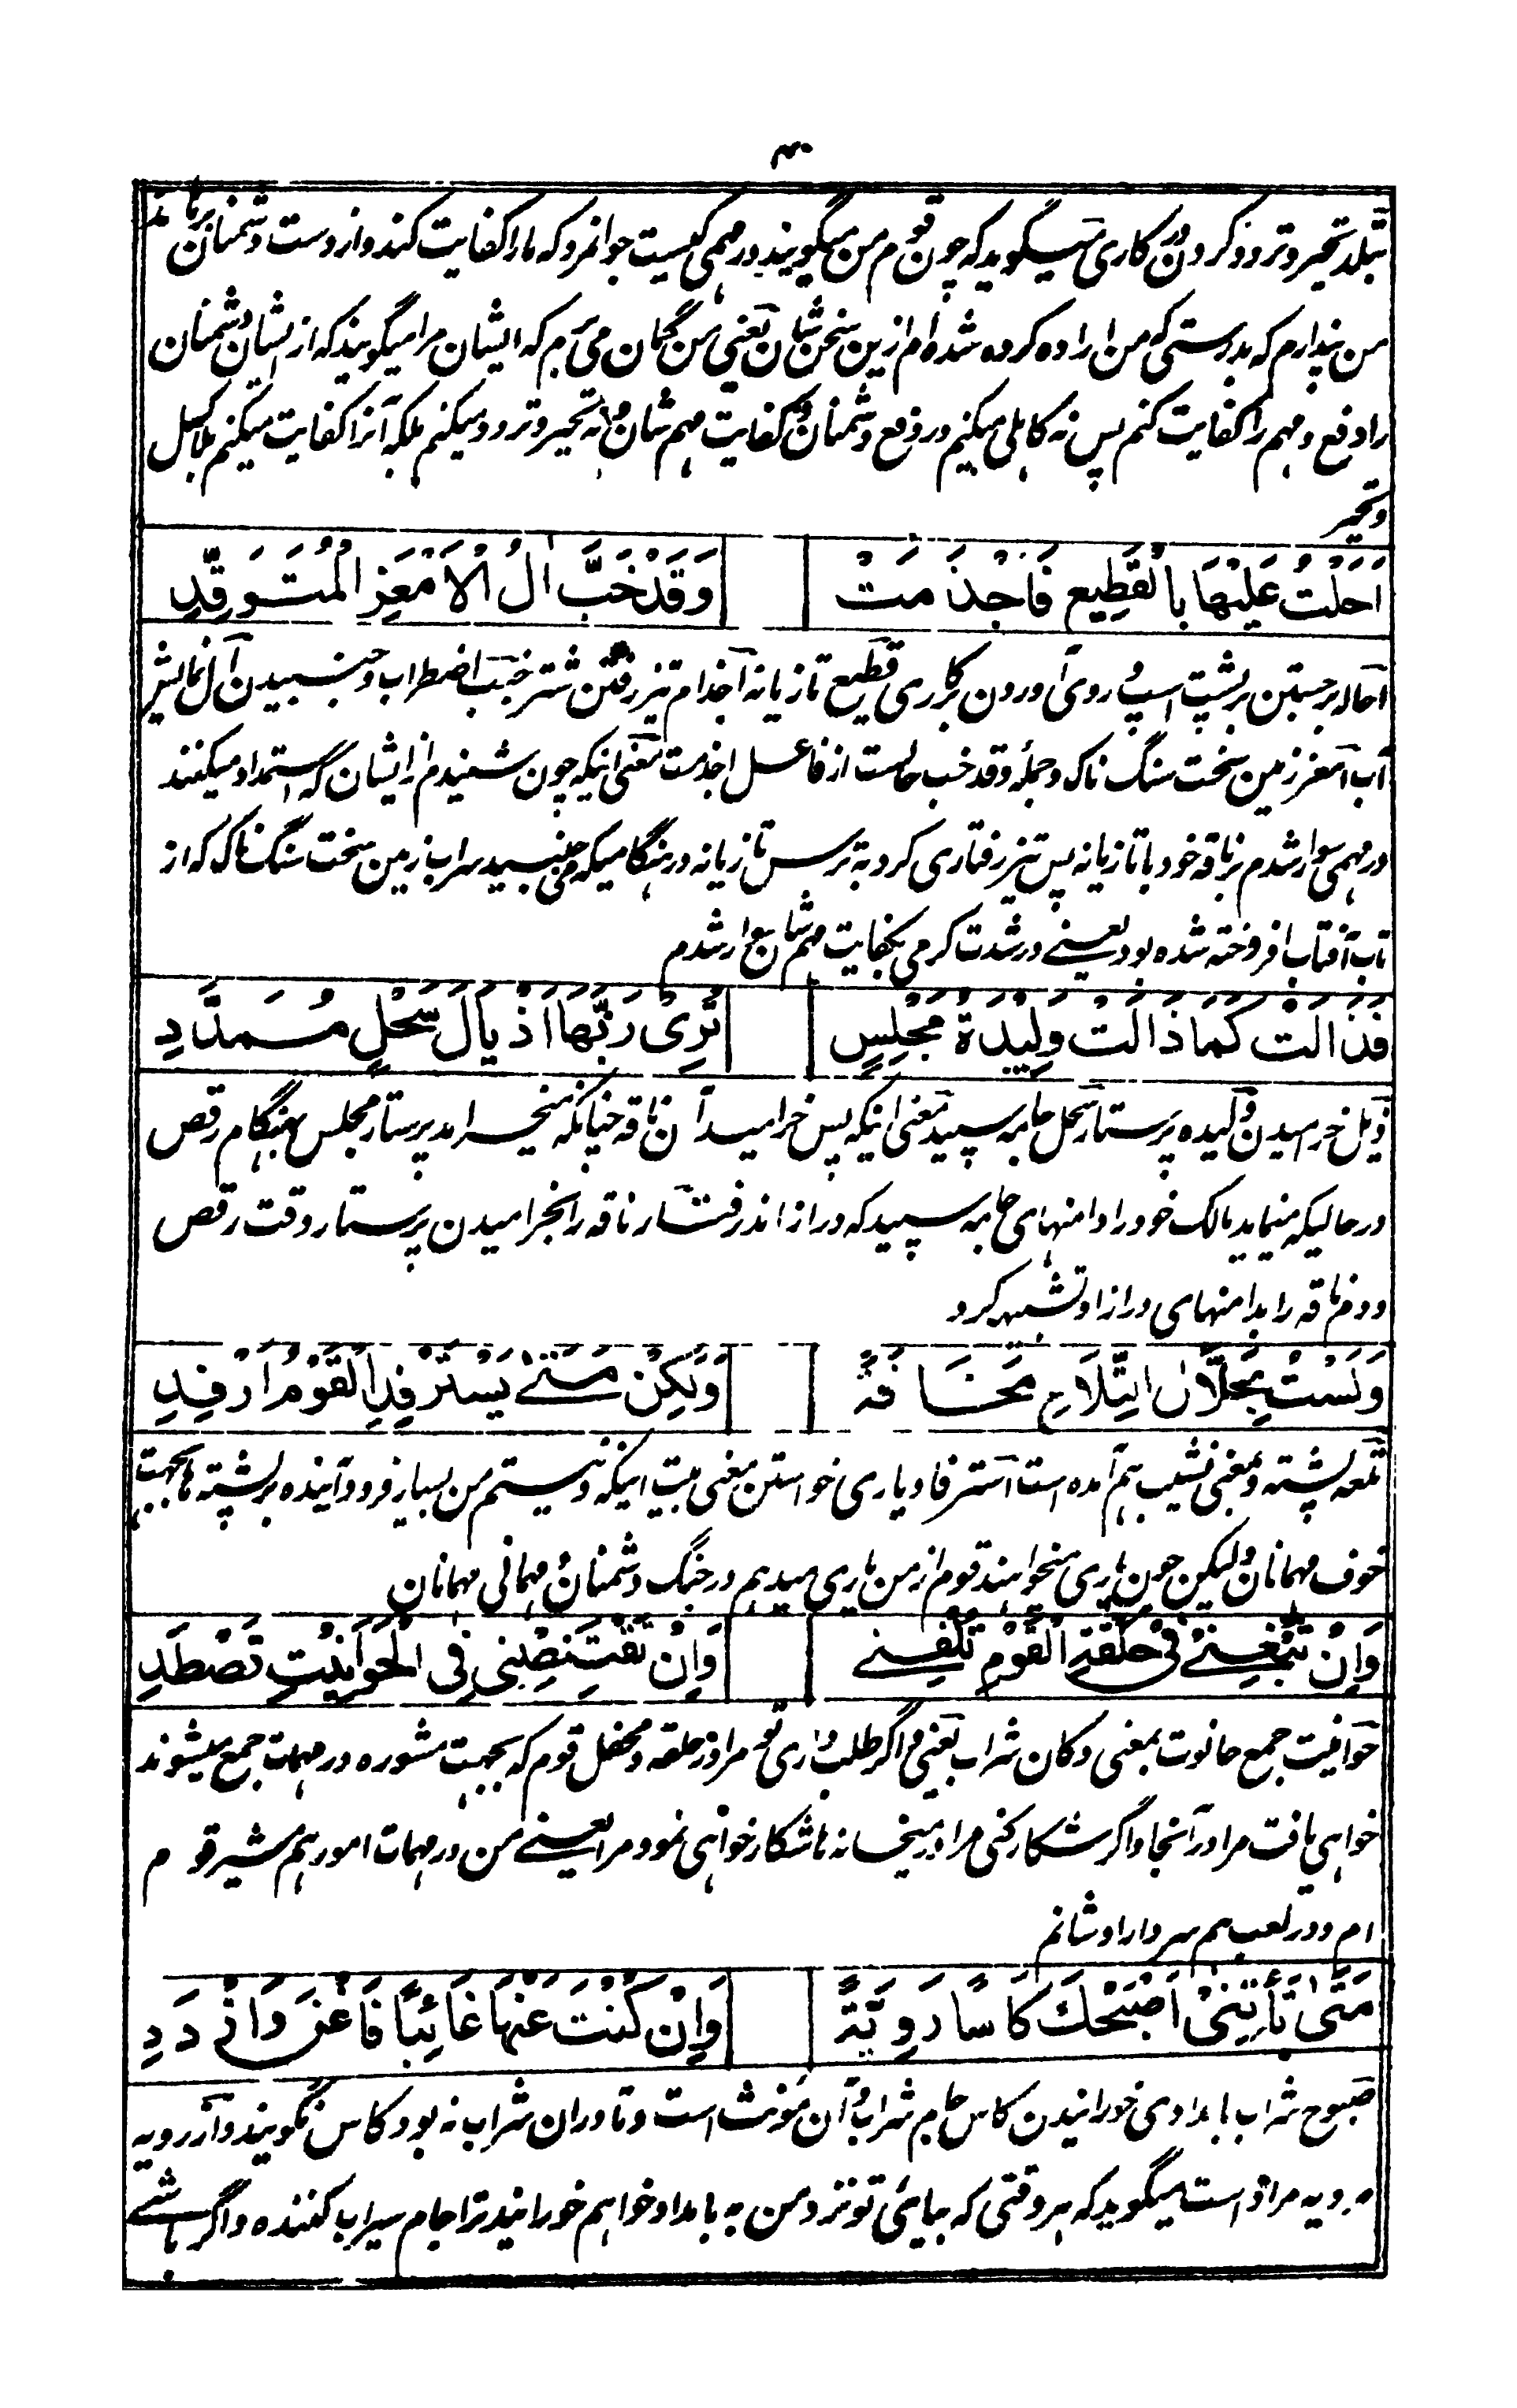 تبلد تحیر و تردد کردن در کاری میگوید که چون قوم من میگویند در مهمی کیست جوانمرد که ما را کفایت کند و از دست دشمنان برهاند
من پندارم که بدرستی که من اراده کرده شده ام ازین سخن شان یعنی من گمان می برم که ایشان مرا میگویند که از ایشان دشمنان
را دفع و مهم را کفایت کنم پس نه کاهلی میکنم در دفع دشمنان و کفایت مهم شان و نه تحیر و تردد میکنم بلکه آنرا کفایت میکنم بلا کسل
و تحیر
اَحَلْتُ عَلَيْهَا بِالْقَطِيعِ فَاَجْذَمَتْ وَقَدْ خَبَّ اٰلُ الْاَمْعَزِ الْمُتَوَقِّدِ
احاله بر جستن بر پشت اسپ و روی آوردن بکاری قطیع تازیانه اجذام تیز رفتن شتر خبب اضطراب و جنبیدن آل نمایش
آب امعز زمین سخت سنگ ناک و جمله وقد خب حالست از فاعل اجذمت معنی اینکه چون شنیدم از ایشان که استمداد میکنند
در مهمی سوار شدم بر ناقه خود با تازیانه پس تیز رفتاری کرد به ترس تازیانه در هنگامیکه می جنبید سراب زمین سخت سنگ ناک که از
تاب آفتاب افروخته شده بود یعنی در شدت گرمی بکفایت مهم شان سوار شدم
فَذَالَتْ كَمَا ذَالَتْ وَلِيْدَةُ مَجْلِسٍ تُرِىْ رَبَّهَا اَذْيَالَ سَحْلٍ مُمَدَّدِ
ذیل خرامیدن ولیده پرستار سحل جامه سپید معنی اینکه پس خرامید آن ناقه چنانکه میخرامد پرستار مجلس بهنگام رقص
در حالیکه مینماید مالک خود را دامنهای جامه سپید که دراز اند رفتار ناقه را بخرامیدن پرستار وقت رقص
و دم ناقه را بدامنهای دراز او تشبیه کرد
وَلَسْتُ بِحَلَّالِ التِّلَاعِ مَخَافَةً وَلٰكِنْ مَتٰى يَسْتَرْفِدِ الْقَوْمُ اَرْفِدِ
تلعه پشته و بمعنی نشیب هم آمده است استرفاد یاری خواستن معنی بیت اینکه و نیستم من بسیار فرود آینده بر پشته ها بجهت
خوف مهمانان و لیکن چون یاری میخواهند قوم از من یاری میدهم در جنگ دشمنان و مهمانی مهمانان
وَاِنْ تَبْغِنِىْ فِىْ حَلْقَةِ الْقَوْمِ تَلْقَنِىْ وَاِنْ تَقْتَنِصْنِى فِى الْحَوَانِيْتِ تَصْطَدِ
حوانیت جمع حانوت بمعنی دکان شراب یعنی و اگر طلب داری تو مرا در حلقه و محفل قوم که بجهت مشوره در مهمات جمع میشوند
خواهی یافت مرا در آنجا و اگر شکار کنی مرا در میخانه ها شکار خواهی نمود مرا یعنی من در مهمات امور هم مشیر قوم
ام و در لعب هم سردار اوشانم
مَتٰى تَأْتِنِىْ اَصْبَحْكَ كَاْسًا رَوِيَّةً وَاِنْ كُنْتَ عَنْهَا غَانِيًا فَاغْنَ وَازْدَدِ
صبوح شراب بامدادی خورانیدن کاس جام شراب و آن مؤنث است و تا دران شراب نه بود کاس نگویند و آنرا رویه
مرویه مراد است میگوید که هر وقتی که بیائی تو نزد من به بامداد خواهم خورانید ترا جام سیراب کننده و اگر باشی